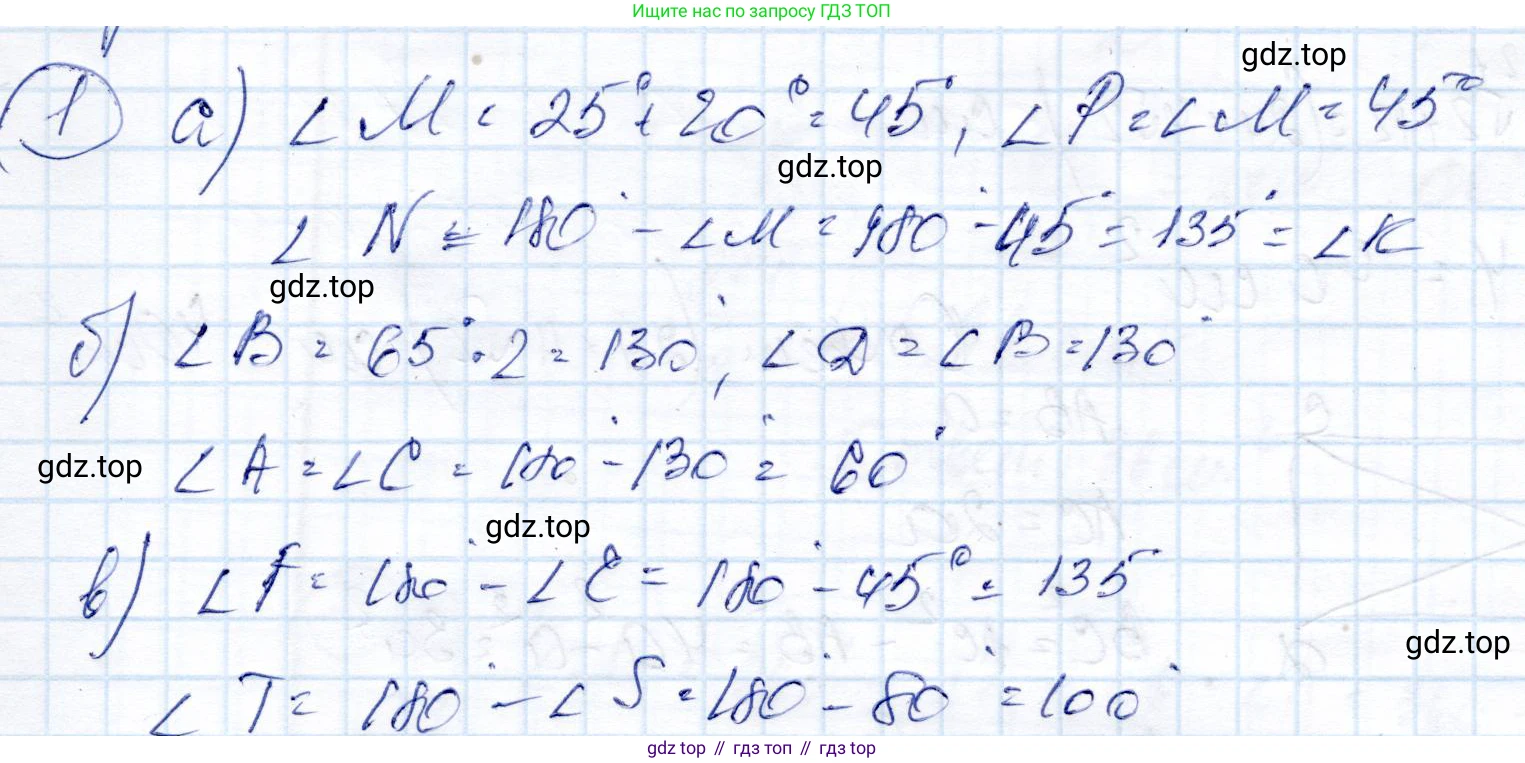 Ищите нас по запросу ГДЗ ТОП
gdz.top
1 а) ∠M = 25° + 20° = 45°, ∠P = ∠M = 45°
gdz.top
∠N = 180° - ∠M = 180° - 45° = 135° = ∠K
gdz.top
б) ∠B = 65° · 2 = 130°, ∠D = ∠B = 130°
gdz.top ∠A = ∠C = 180° - 130° = 60°
gdz.top
в) ∠F = 180° - ∠E = 180° - 45° = 135
gdz.top
∠T = 180° - ∠S = 180° - 80° = 100°
gdz top // гдз топ // гдз top